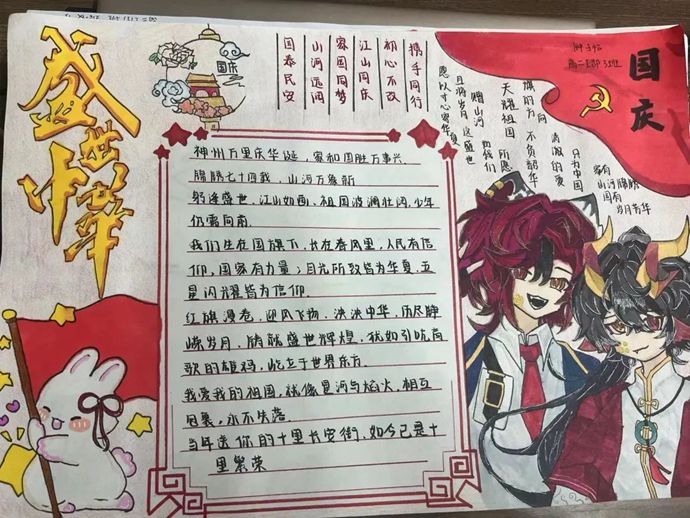 盛世中华
国庆
国泰民安
山河远阔
家国同梦
江山同庆
初心不改
携手同行
国庆
旗的方向
天耀祖国
不负韶华
清澈的爱
只为中国
家有
山河锦绣
国有
岁月芳华
神州万里庆华诞，家和国胜万事兴
腾腾七十四载，山河万象新
躬逢盛世，江山如画，祖国波澜壮阔，少年
仍需向前
我们生在国旗下，长在春风里，人民有信
仰，国家有力量；目光所致皆为华夏，五
星闪耀皆为信仰
红旗漫卷，迎风飞扬，泱泱中华，历尽峥
嵘岁月，铸就盛世辉煌，犹如引吭高
歌的雄鸡，屹立于世界东方
我爱我的祖国，就像星河与焰火，相互
包裹，永不失落
当年送你的十里长安街，如今已是十
里繁荣